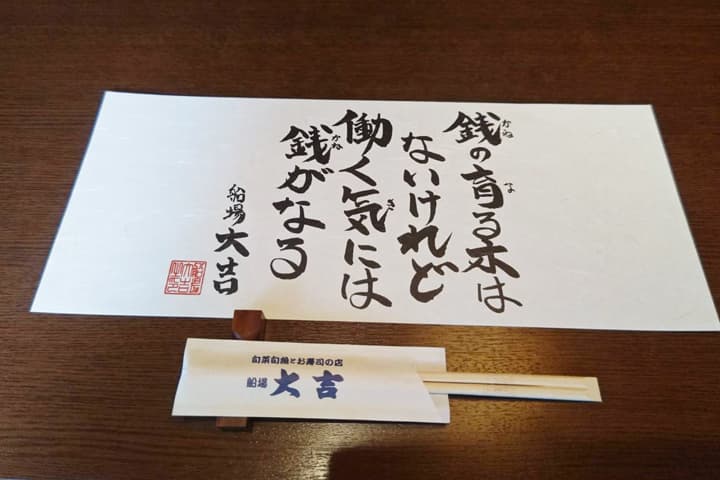 銭の育る木は
ないけれど
働く気には
銭がなる
船場 大吉
旬菜旬魚とお寿司の店
船場 大吉